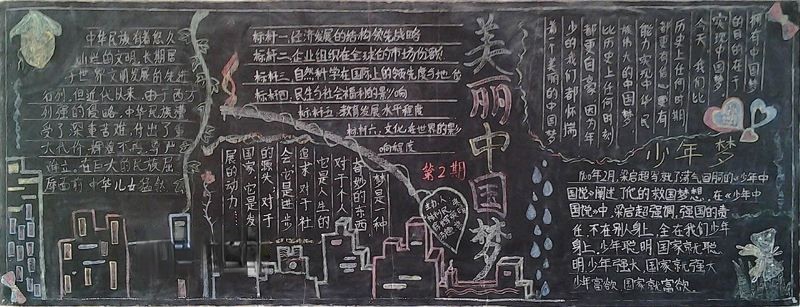 中华民族有着悠久
灿烂的文明,长期居
于世界文明发展的先进
行列,但近代以来,由于西方
列强的侵略,中华民族遭
受了深重苦难,付出了重
大代价,拥难不屈,
在巨大的民族屈
中华儿女
标杆一.经济发展的结构领先战略
标杆二.企业组织在全球的市场份额
标杆三.自然科学在国际上的领先度与地位
标杆四.民生与社会福利的影响
标杆五.教育发展水平程度
标杆六.文化在世界的影
响程度
梦是一种
奇妙的东西
对于个人
它是人生的
追求,对于社
会,它是进步
的源头,对于
国家,它是发
展的动力…
美丽中国梦
第2期
拥有中国梦
的目的在于
实现中国梦
今天,我们比
历史上任何时期
都更有信心,更有
能力实现中华民
族伟大的中国梦
比历史上任何时刻
都更自豪,因为年
少的我们都怀揣
着个美丽的中国梦
少年梦
1900年2月,梁启超发表了荡气回肠的《少年中
国说》阐述了他的救国梦想,在《少年中
国说》中,梁启超强调,强国的责
任,不在别人身上,全在我们少年
身上,少年聪明国家就聪
明少年强大国家就强大
少年富欲国家就富欲